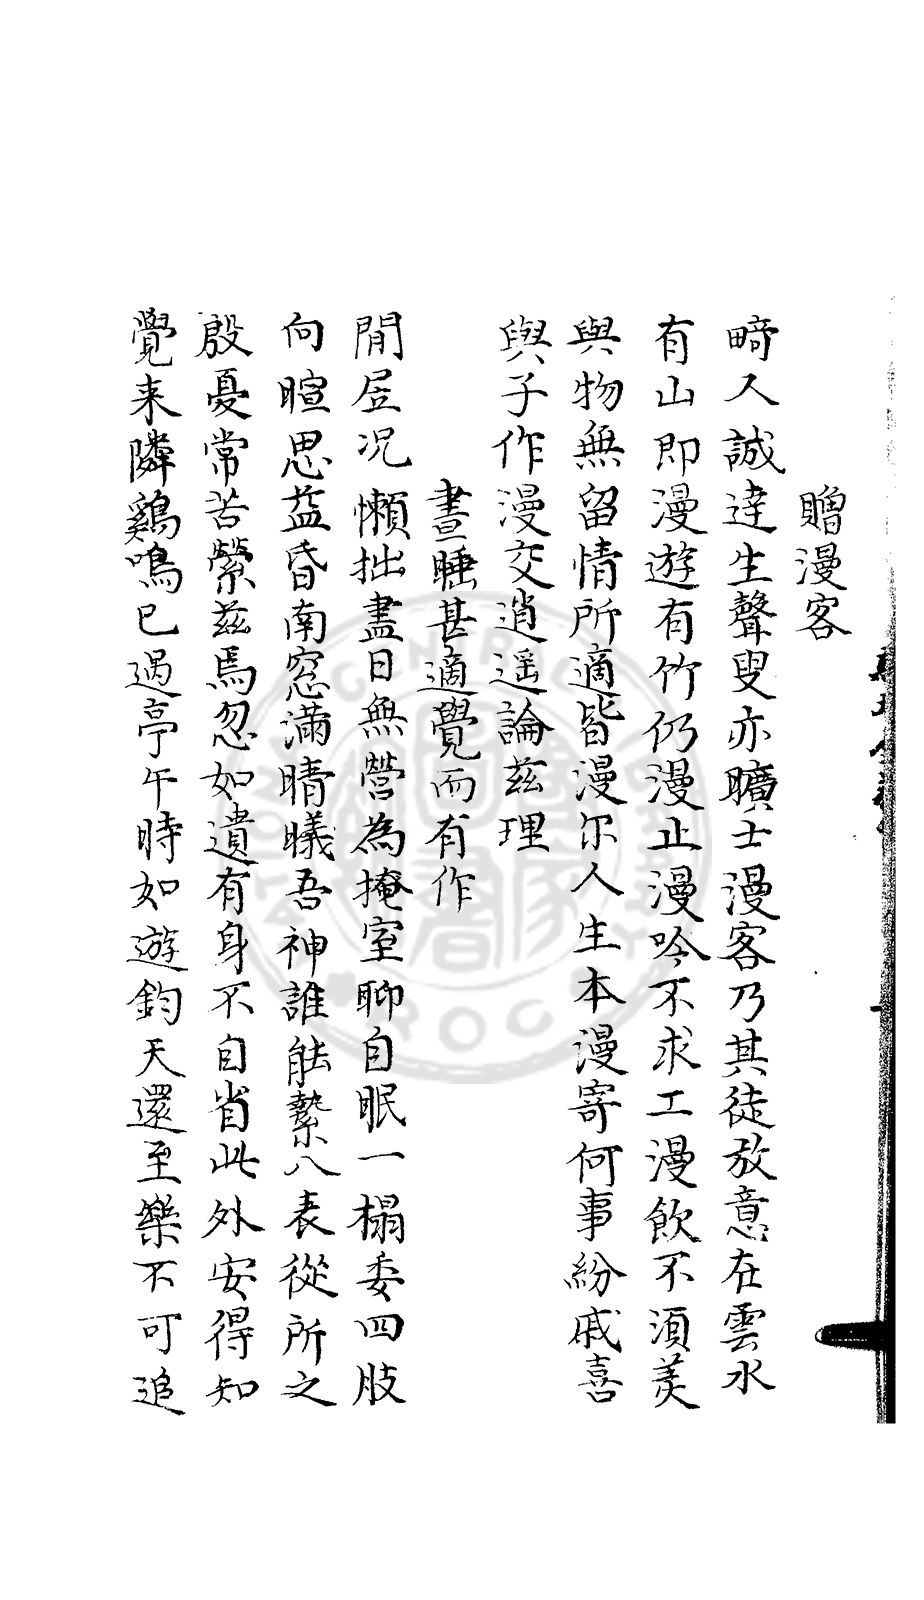 贈漫客
畸人誠達生聲叟亦曠士漫客乃其徒放意在雲水
有山即漫遊有竹仍漫止漫吟不求工漫飲不須美
與物無留情所適皆漫尔人生本漫寄何事紛戚喜
與子作漫交逍遥論茲理
晝睡甚適覺而有作
閒居况懶拙盡日無營為掩室聊自眠一榻委四肢
向暄思益昏南窓滿晴曦吾神誰能縶八表從所之
殷憂常苦縈茲焉忽如遺有身不自省此外安得知
覺来隣鷄鳴已過亭午時如遊鈞天還至樂不可追